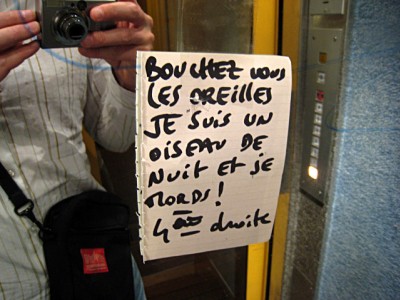 BOUCHEZ VOUS
LES OREILLES
JE SUIS UN
OISEAU DE
NUIT ET JE
MORDS!
4ème droite